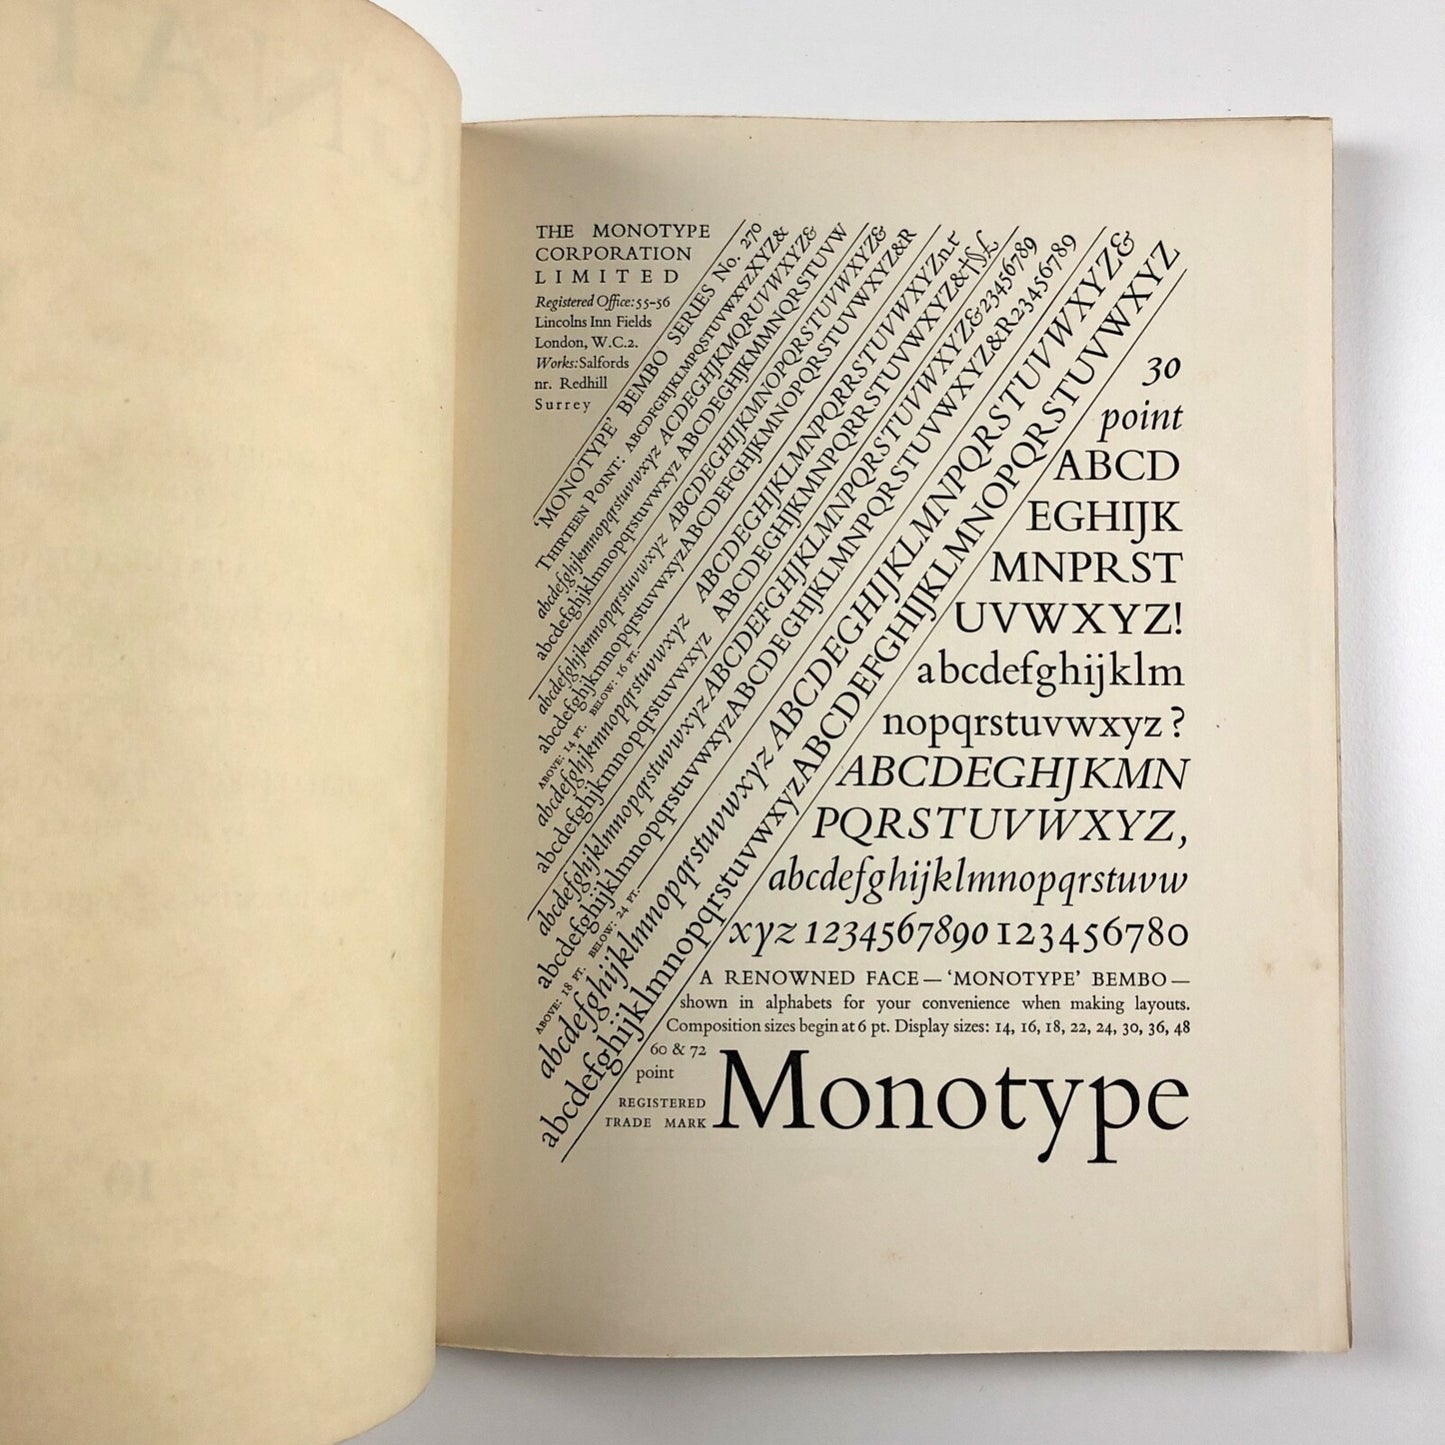 THE MONOTYPE
CORPORATION
LIMITED
Registered Office: 55–56
Lincolns Inn Fields
London, W.C.2.
Works: Salfords
nr. Redhill
Surrey
‘MONOTYPE’ BEMBO SERIES No. 270
THIRTEEN POINT: ABCDFGHJKLMPQSTUVWXYZXYZ&
abcdefghijkmnopqrstuvwxyz ACDEGHJKMQRUVWXYZ&
abcdefghijklmnopqrstuvwxyz ABCDEGHJKMMNQRSTUVW
abcdefghijkmnopqrstuvwxyz ABCDEGHIJKMNOPQRSTUVWXYZ&
abcdefghjkmnopqrstuvwxyzABCDEFGHJKMNOPQRSTUVWXYZ&R
ABOVE: 14 PT. BELOW: 16 PT.
abcdefghijkmnopqrstuvwxyz ABCDEGHJKLMNPQRRSTUVWXYZ
abcdefghjkmnopqrstuvwxyz ABCDEGHJKMNPQRRSTUVWXYZ&†§£
abcdefghjklmnopqrstuvwxyz ABCDEFGHJKLMNPQRSTUVWXYZ&23456789
abcdefghijklmnopqrstuvwxyzABCDEGHJKLMNPQRSTUVWXYZ&R23456789
ABOVE: 18 PT. BELOW: 24 PT.
abcdefghijklmnopqrstuvwxyz ABCDEGHIJKLMNPQRSTUVWXYZ&
abcdefghijklmnopqrstuvwxyzABCDEFGHIJKLMNOPQRSTUVWXYZ
30
point
ABCD
EGHIJK
MNPRST
UVWXYZ!
abcdefghijklm
nopqrstuvwxyz?
ABCDEGHJKMN
PQRSTUVWXYZ,
abcdefghijklmnopqrstuvw
xyz 1234567890 123456780
A RENOWNED FACE — ‘MONOTYPE’ BEMBO —
shown in alphabets for your convenience when making layouts.
Composition sizes begin at 6 pt. Display sizes: 14, 16, 18, 22, 24, 30, 36, 48
60 & 72
point
REGISTERED
TRADE MARK
Monotype